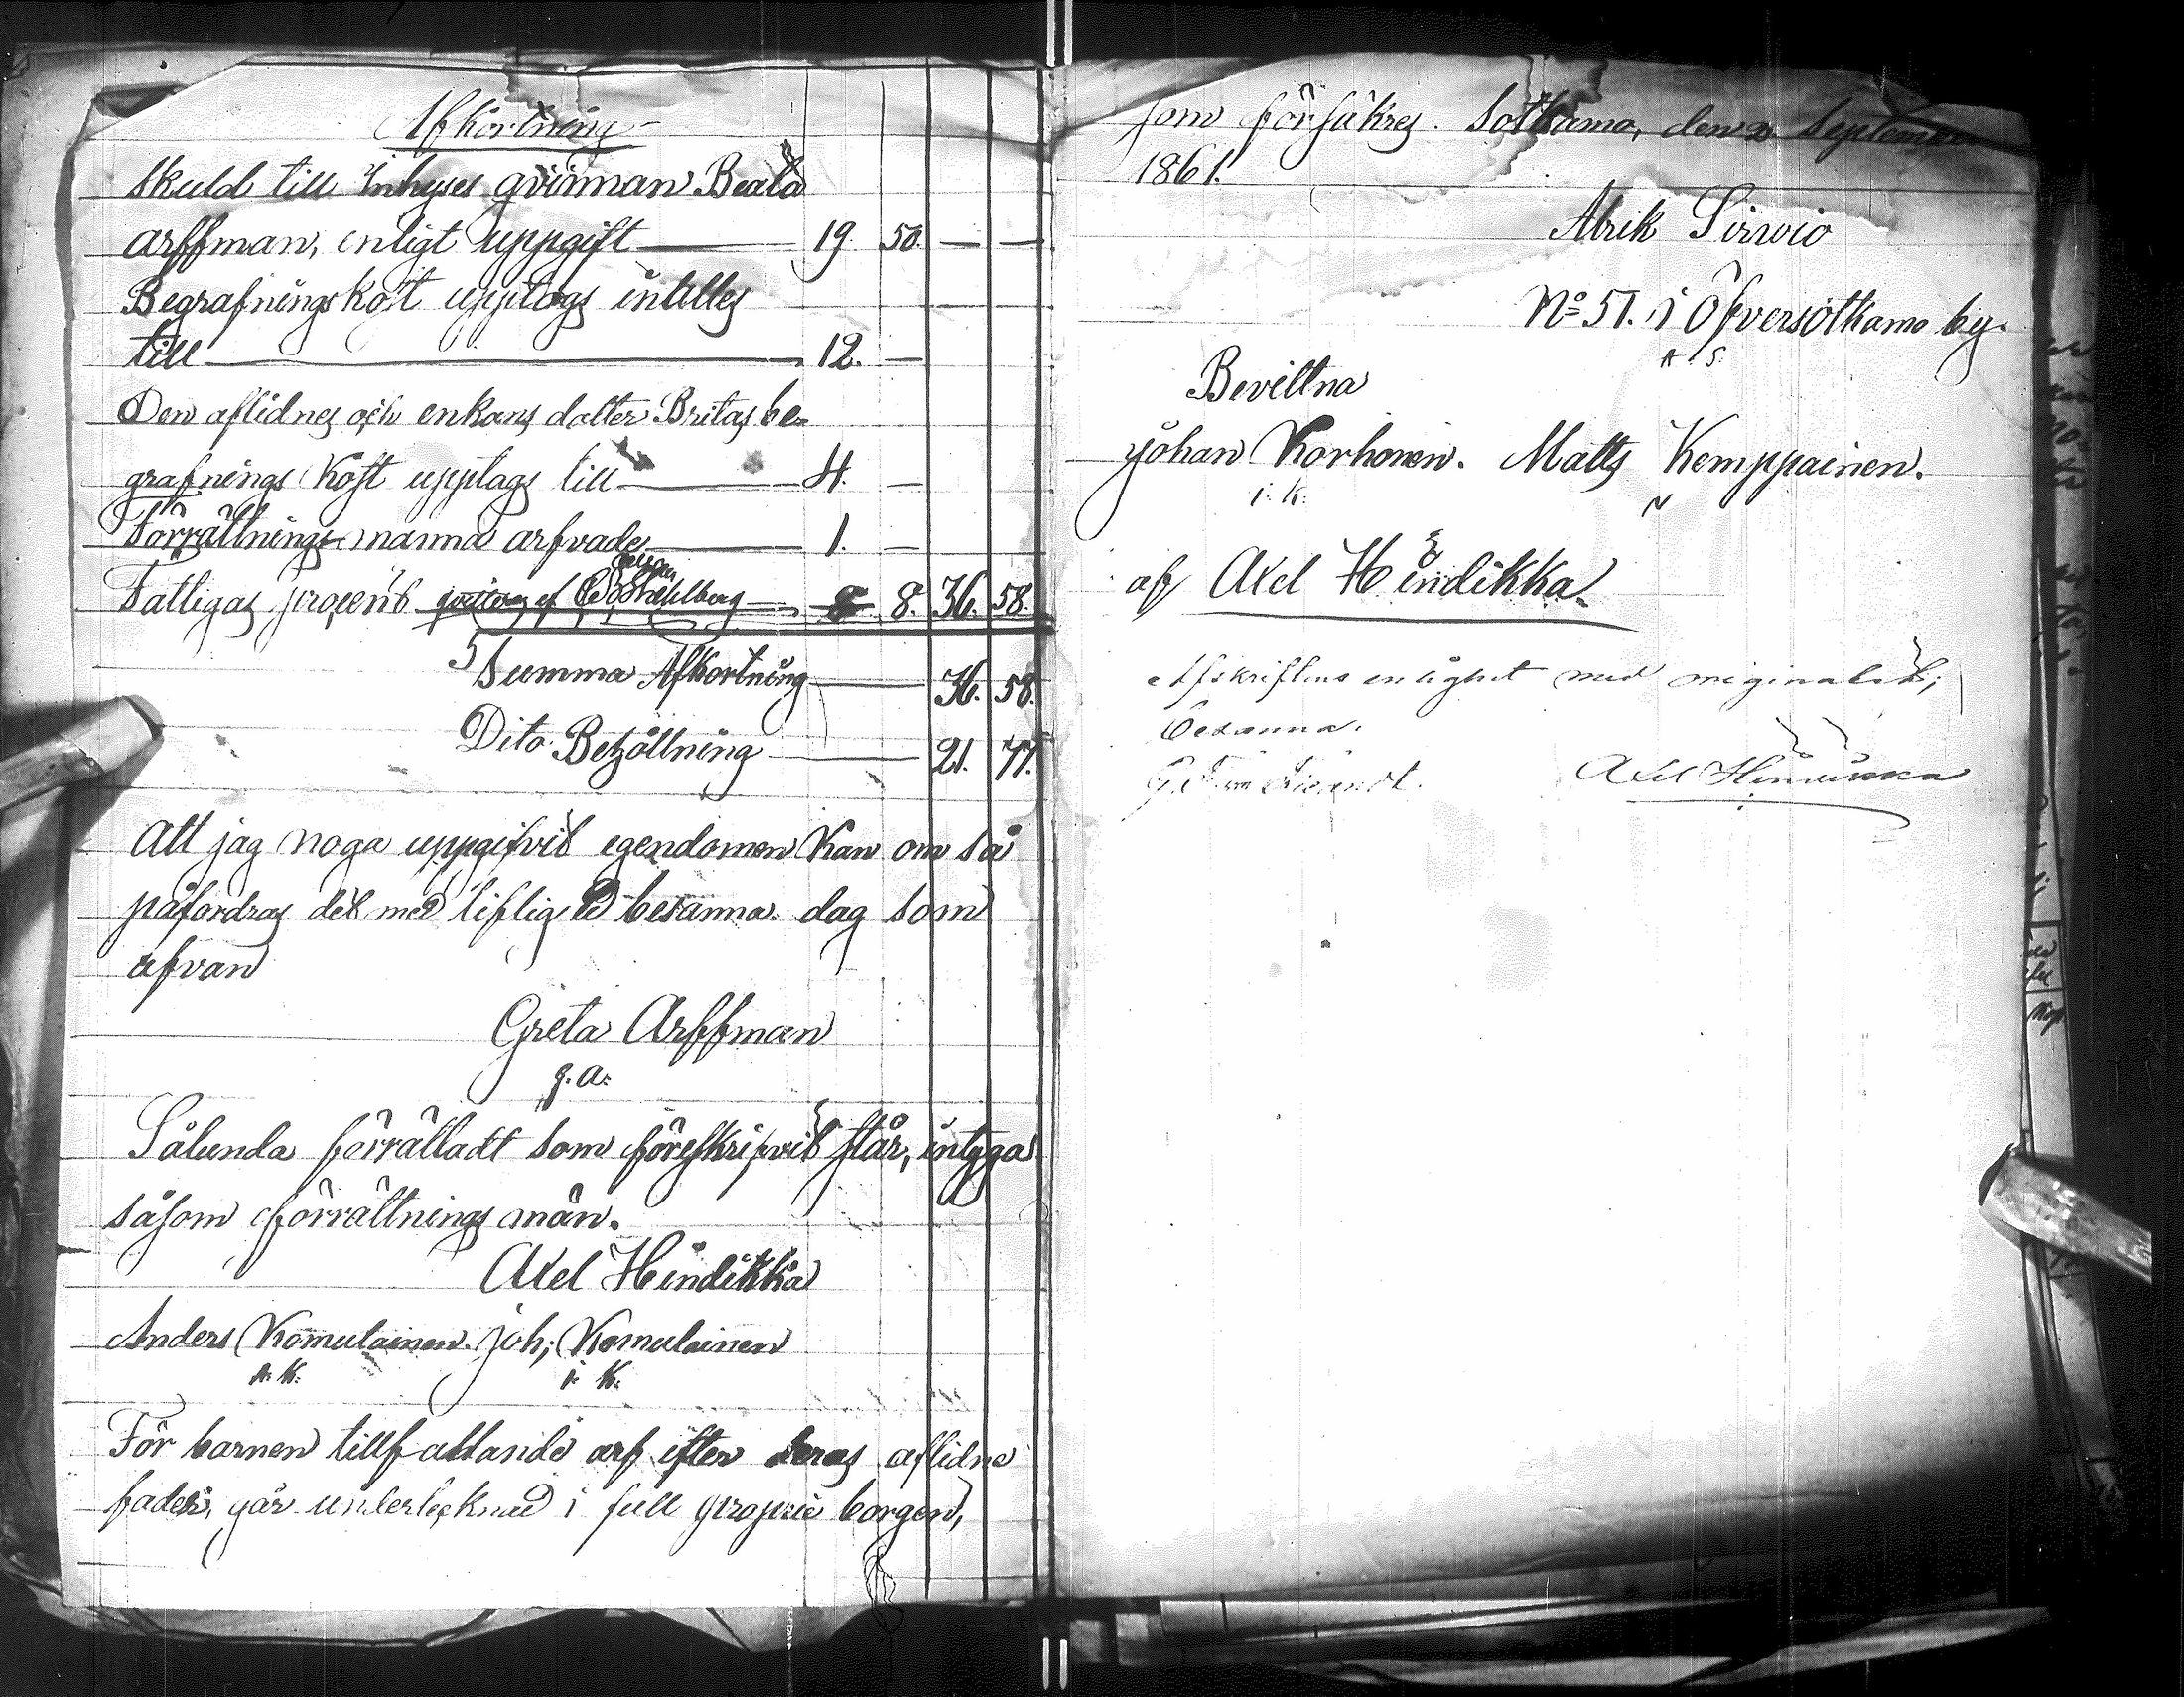 Afkortning
Skuld till Inhyses qvinnan Beata
Arffman, enligt uppgift 19. 50. — —
Begrafnings kost upptogs intilles
till 12. —
Den aflidnes och enkans dotter Britas be-
grafnings kost upptags till 4. —
Förrättnings manna arfvade 1. —
Fattigas procent 8. 36. 58.
Summa Afkortning 36. 58.
Dito Behållning 21. 77.
Att jag noga uppgifvit egendomen kan om så
påfordras det med liflig Ed besanna. dag som
ofvan
Greta Arffman
g. a.
Sålunda förrättadt som föreskrifvit står, intyga
såsom förrättnings män.
Axel Heindikka
Anders Komulainen. Joh; Komulainen
A. K. i. K.
För barnen tillfallande arf efter deras aflidne
fader, går undertecknad i full proprie borgen,
som försäkres. Sotkamo, den September
1861.
Abrik Sirvio
No 51. i Öfversotkamo by.
A. S.
Bevittna
Johan Korhonen. Matts Kemppainen.
i. K.
af Axel Heindikka
Afskriftens enlighet med originalet;
besanna.
Axel Heindikka